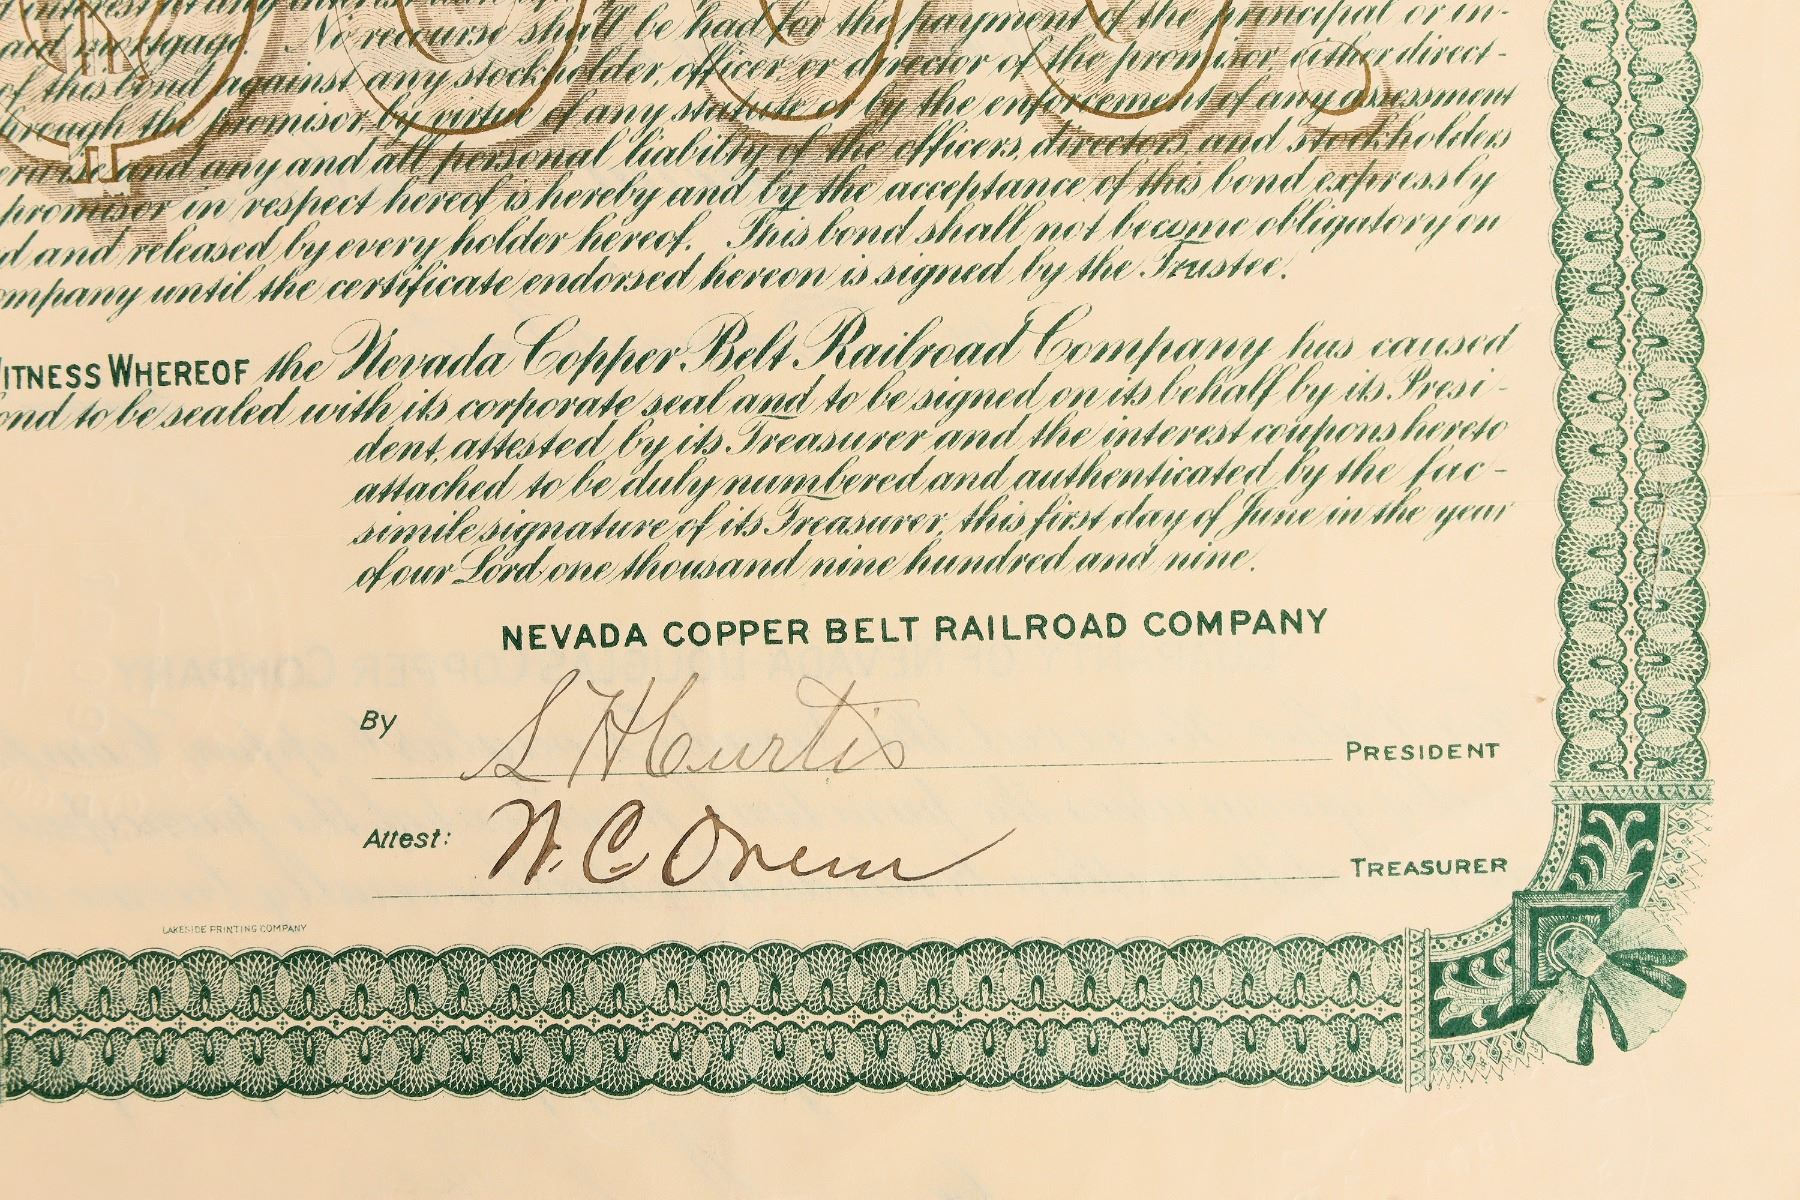 said mortgage. No recourse shall be had for the payment of the principal or in-
of this bond against any stockholder, officer or director of the promisor either direct-
through the promisor, by virtue of any statute or by the enforcement of any assessment
erwise and any and all personal liability of the officers, directors and stockholders
promisor in respect hereof is hereby and by the acceptance of this bond expressly
d and released by every holder hereof. This bond shall not become obligatory on
ompany until the certificate endorsed hereon is signed by the Trustee.
ITNESS WHEREOF the Nevada Copper Belt Railroad Company has caused
ond to be sealed with its corporate seal and to be signed on its behalf by its Presi-
dent, attested by its Treasurer and the interest coupons hereto
attached to be duly numbered and authenticated by the fac-
simile signature of its Treasurer, this first day of June in the year
of our Lord one thousand nine hundred and nine.
NEVADA COPPER BELT RAILROAD COMPANY
By S H Curtis PRESIDENT
Attest: W. C. Orem TREASURER
LAKESIDE PRINTING COMPANY